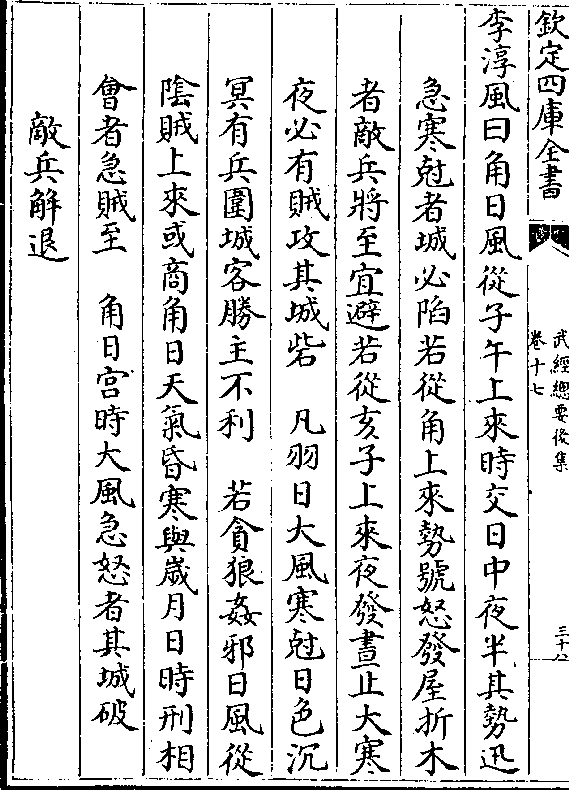 欽定四庫全書
武經總要後集
卷十七
三十八
李淳風曰角日風從子午上來時交日中夜半其勢迅
急寒尅者城必陷若從角上來勢號怒發屋折木
者敵兵將至宜避若從亥子上來夜發晝止大寒
夜必有賊攻其城砦　凡羽日大風寒尅日色沉
冥有兵圍城客勝主不利　若貪狼姦邪日風從
陰賊上來或商角日天氣昏寒與歲月日時刑相
會者急賊至　角日宮時大風急怒者其城破
敵兵解退